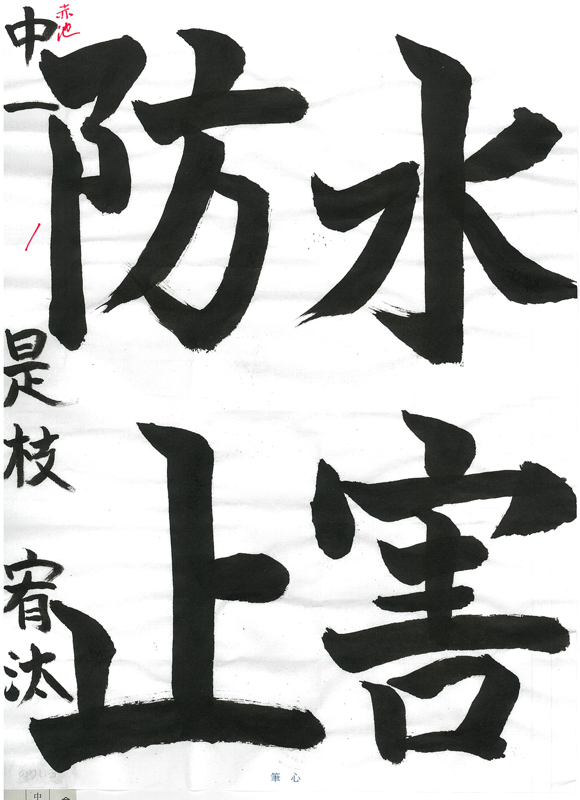 水害
防止
赤池
中一
是枝 宥汰
筆心
中